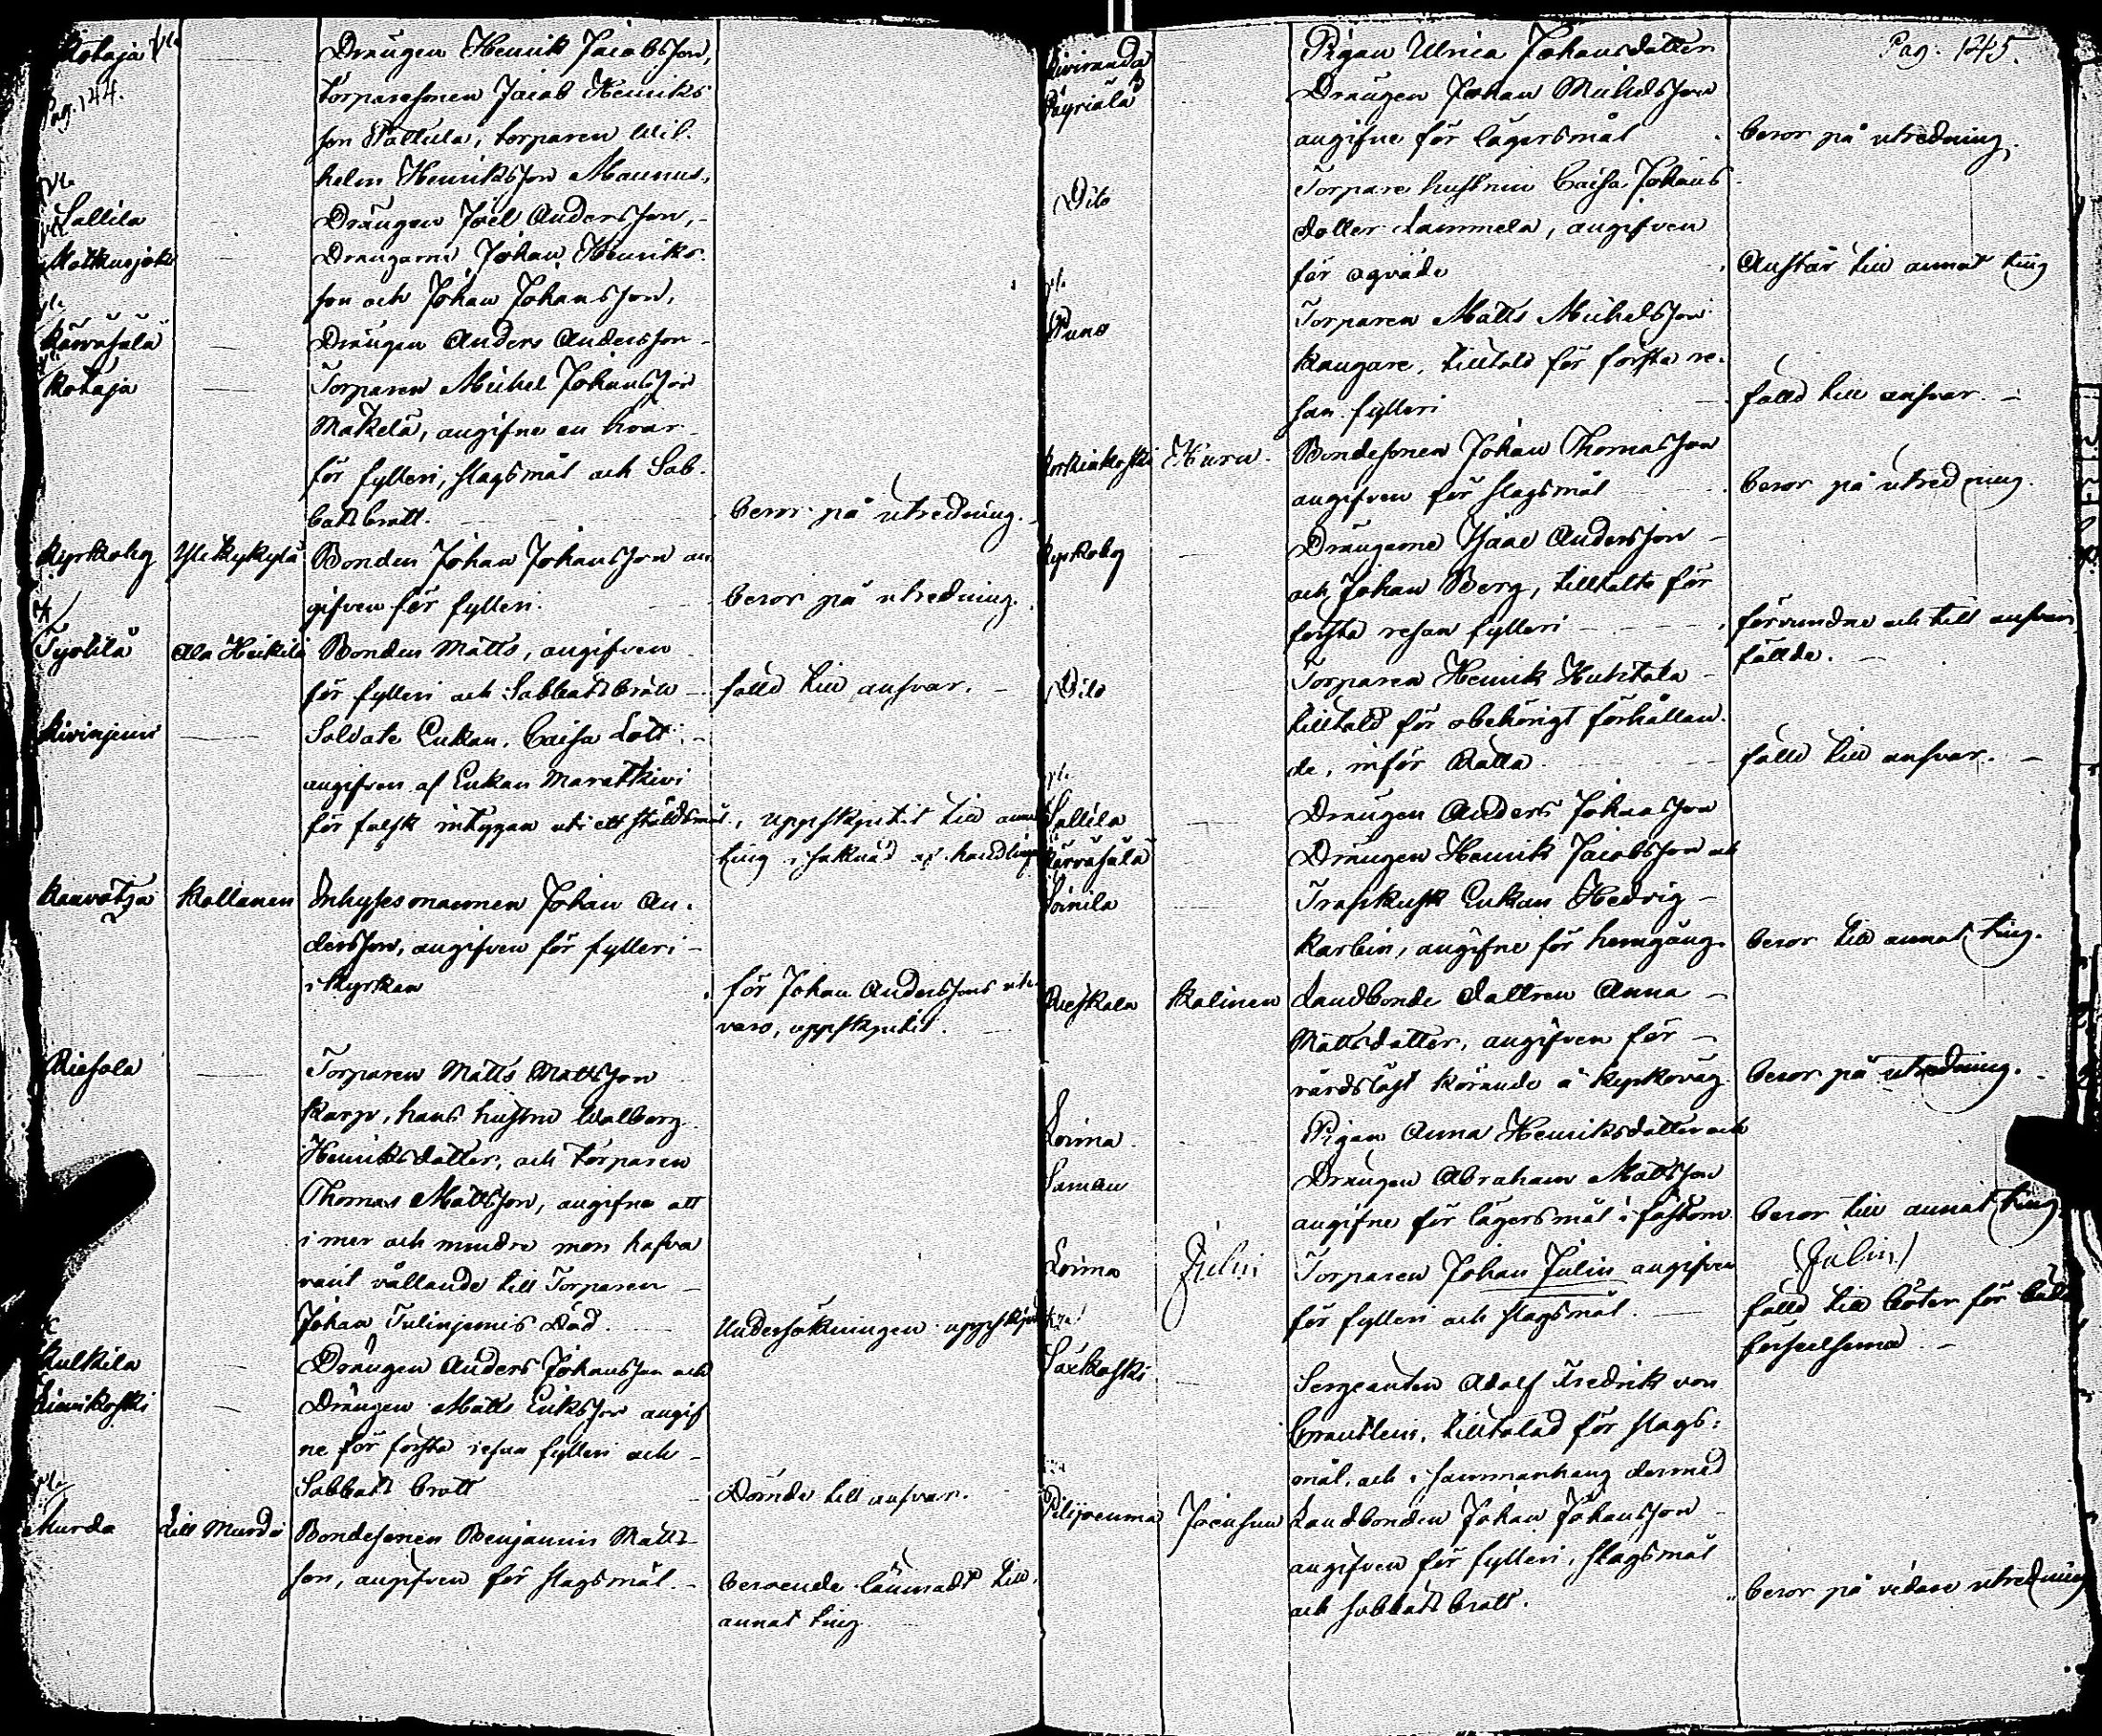 Kotaja Drängen Henrik Jacobsson,
Pag. 144. torparesonen Jacob Henriks
son Pattula, torparen Wil-
helm Henriksson Maunus,
Sallila Drängen Joël Andersson,
Matkusjoki Drängarne Johan Henriks-
son och Johan Johansson,
Kärväsälä Drängen Anders Andersson
Kotaja Torparen Michel Johansson
Mäkelä, angifne en hvar
för fylleri, slagsmål och Sab-
batsbrott. beror på utredning.
Kyrkoby Yli Kykylä Bonden Johan Johansson an-
gifven för fylleri. beror på utredning.
Tyrölä Ala Heikilä Bonden Matts, angifven
för fylleri och Sabbatsbrott fälld till ansvar.
Kivinjemi Soldate Enkan Caisa Lätt
angifven af Enkan Maratkivi
för falsk intygan uti ett stöldsmål, uppskjutit till annat
ting i saknad af handlingar
Kauvatsa Kallanen Inhysesmannen Johan An-
dersson, angifven för fylleri
i kyrkan för Johan Anderssons ute-
varo, uppskjutit.
Riesola Torparen Matts Mattsson
Karp, hans hustru Walborg
Henriksdotter, och torparen
Thomas Mattsson, angifne att
i mer och mindre mon hafva
varit vållande till Torparen
Johan Tulinjemis död. Undersökningen uppskjuten
Kulkila Drängen Anders Johansson och
Lievikoski Drängen Matts Eriksson angif
ne för första resan fylleri och
Sabbats brott Dömde till ansvar.
Murdo Lill Murdo Bondesonen Benjamin Matts
son, angifven för slagsmål. beroende lämnadt till
annat ting
Kiviranda Pigan Ulrica Johansdotter Pag. 145.
Drängen Johan Michelsson
angifne för lägersmål beror på utredning.
Dito Torpare hustrun Caisa Johans
dotter Lammela, angifven
för oqväde Anstår till annat ting
Puno Torparen Matts Michelsson
Kangare, tilltald för första re-
san fylleri fälld till ansvar.
Korkiakoski Huru Bondesonen Johan Thomasson
angifven för slagsmål beror på utredning.
Kyrkoby Drängarne Isaac Andersson
och Johan Berg, tilltalte för
första resan fylleri förvundne och till ansvar
fällde.
Dito Torparen Henrik Huhtala
tilltald för obehörigt förhållan-
de, inför Rätta fälld till ansvar.
Sallila Drängen Anders Johansson
Kärväsälä Drängen Henrik Jacobsson och
Soinila Enkan Hedvig
Karlin, angifne för hemgång. beror till annat ting.
Räeskala Kalinen Landbonde dottren Anna
Mattsdotter, angifven för
vårdslöst körande å kyrkoväg beror på utredning.
Loima Pigan Anna Henriksdotter och
Suman Drängen Abraham Mattsson
angifne för lägersmål i fästom beror till annat ting
Loima Julin Torparen Johan Julin angifven (Julin)
för fylleri och slagsmål. fälld till böter för båda
förseelserna
Säkkoski Sergeanten Adolf Fredrik von
tilltalad för slags-
mål, och i sammanhang dermed
Piilijoenma Joensuu Landbonden Johan Johansson
angifven för fylleri, slagsmål
och sabbatsbrott. beror på vidare utredning